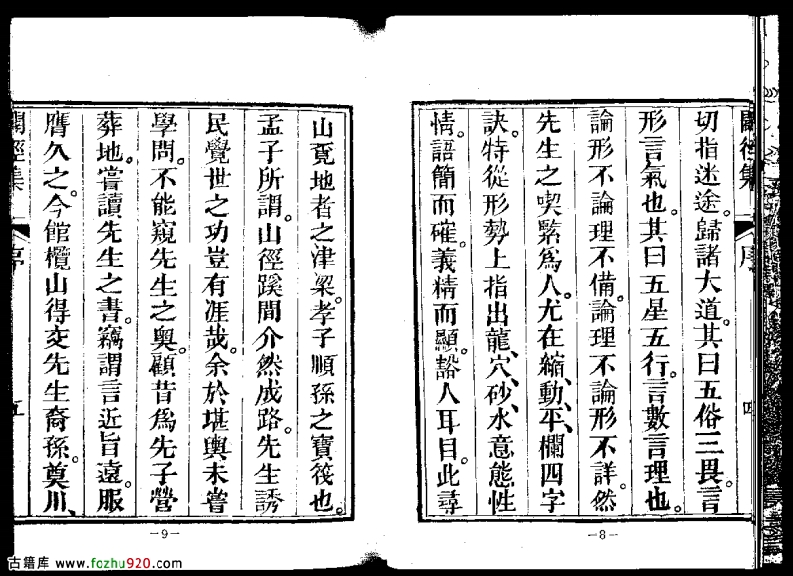 闢徑集
序
四
切指迷途。歸諸大道。其曰五俗三畏。言
形言氣也。其曰五星五行。言數言理也。
論形不論理不備。論理不論形不詳。然
先生之喫緊為人。尤在縮、動、平、欄四字
訣。特從形勢上指出龍、穴、砂、水意態性
情。語簡而確。義精而顯。豁人耳目。此尋
—8—
山覔地者之津梁。孝子順孫之寶筏也。
孟子所謂。山徑蹊間介然成路。先生誘
民覺世之功豈有涯哉。余於堪輿未嘗
學問。不能窺先生之奧。顧昔為先子營
葬地。嘗讀先生之書。竊謂言近旨遠。服
膺久之。今館欖山得交先生裔孫。奠川、
闢徑集
序
五
—9—
古籍库 www.fozhu920.com